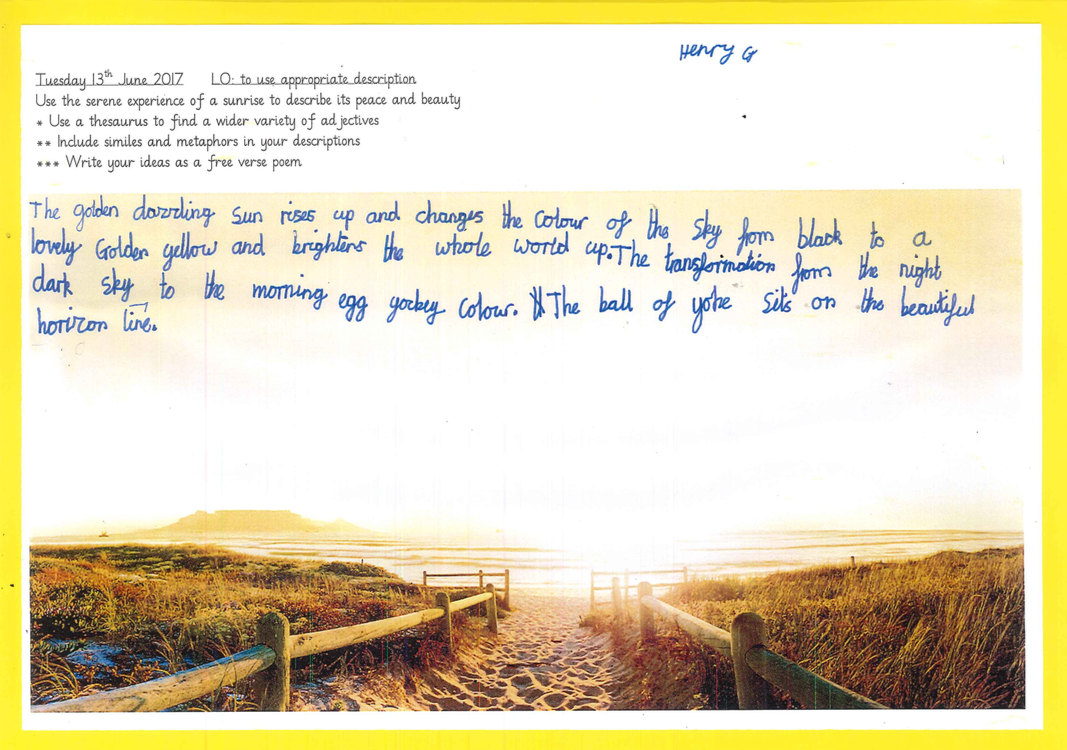 Henry G
Tuesday 13th June 2017 LO: to use appropriate description
Use the serene experience of a sunrise to describe its peace and beauty
* Use a thesaurus to find a wider variety of adjectives
** Include similes and metaphors in your descriptions
*** Write your ideas as a free verse poem
The golden dazzling sun rises up and changes the colour of the sky from black to a
lovely Golden yellow and brightens the whole world up. The transformation from the night
dark sky to the morning egg yockey colour. The ball of yoke sits on the beautiful
horizon line.